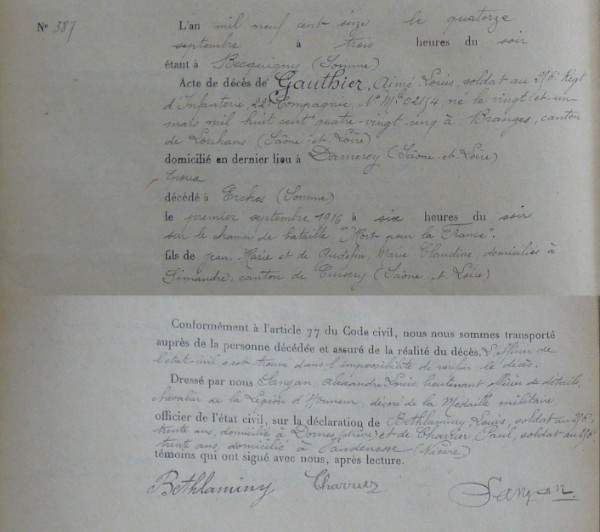 Nº 387
L'an mil neuf cent seize le quatorze
septembre à trois heures du soir
étant à Becquigny (Somme)
Acte de décès de Gauthier, Aimé Louis, soldat au 276e Régt
d'Infanterie, 22e Compagnie, né le vingt et un
mars mil huit cent quatre-vingt cinq à Branges, canton
de Louhans (Saône-et-Loire)
domicilié en dernier lieu à Damerey (Saône-et-Loire)
décédé à Erches (Somme)
le premier septembre 1916 à six heures du soir
sur le champ de bataille "Mort pour la France".
fils de Jean-Marie et de Marie Claudine, domiciliés à
Simandre, canton de Cuisery (Saône-et-Loire)
Conformément à l'article 77 du Code civil, nous nous sommes transporté
auprès de la personne décédée et assuré de la réalité du décès. L'officier de
l'état-civil s'est trouvé dans l'impossibilité de vérifier le décès.
Dressé par nous Sanzan, Alexandre Louis, lieutenant officier de détails,
chevalier de la Légion d'Honneur, décoré de la Médaille militaire
officier de l'état civil, sur la déclaration de Bethlaminy, Louis, soldat au 276e
trente ans, domicilié à Dornes (Nièvre) et de Charrier Paul, soldat au 276e
trente ans, domicilié à Vandenesse (Nièvre)
témoins qui ont signé avec nous, après lecture.
Bethlaminy Charrier Sanzan